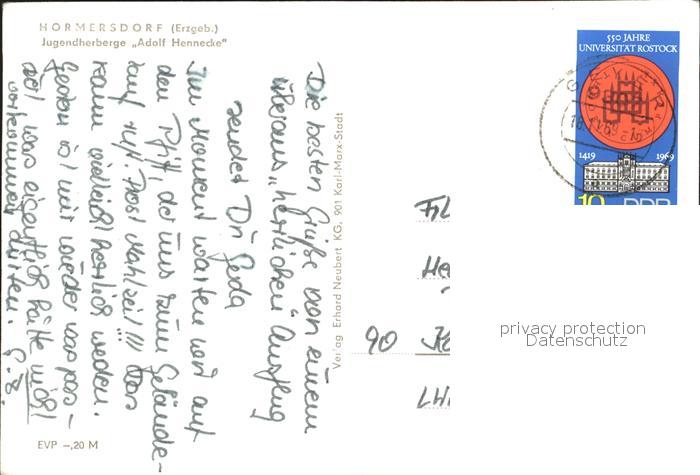 HORMERSDORF (Erzgeb.)
Jugendherberge „Adolf Hennecke"
Die besten Grüße von einem
überaus „herzlichen" Ausflug
sendet Dir Gerda
Im Moment warten wir auf
den Pfiff, der uns zum Gelände-
lauf ruft. Prost Mahlzeit!!! Das
kann vielleicht herrlich werden.
Gestern ist mir wieder was pas-
siert was eigentlich hätte nicht
vorkommen dürfen. G. B.
EVP –,20 M
Verlag Erhard Neubert KG, 901 Karl-Marx-Stadt
550 JAHRE
UNIVERSITÄT ROSTOCK
1419 1969
10 DDR
90
privacy protection
Datenschutz